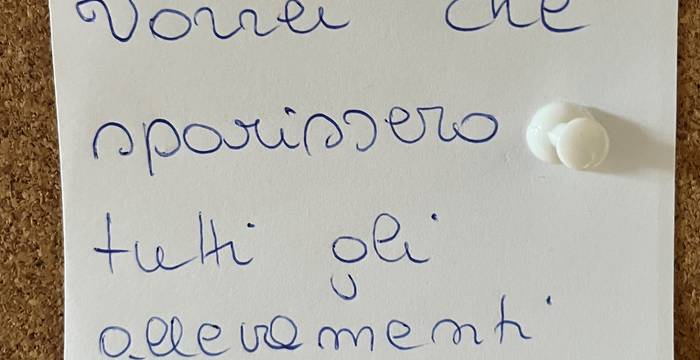 Vorrei che
sparissero
tutti gli
allevamenti